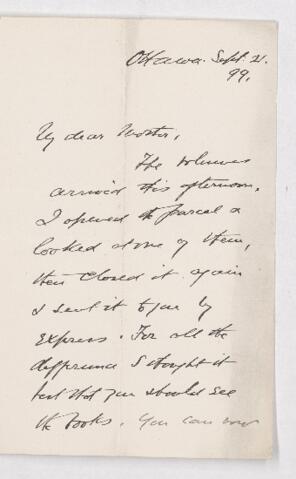 Ottawa. Sept. 21.
99.
My dear
The volumes
arrived this afternoon.
I opened the parcel &
looked at one of them,
then closed it again
& sent it to you by
Express. For all the
difference I thought it
best that you should see
the books. You can now